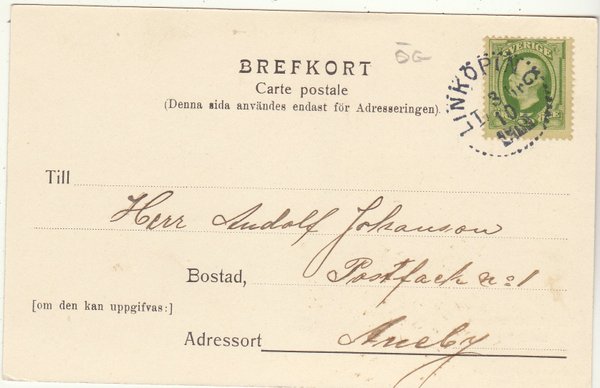 ÖG
SVERIGE
LINKÖPING
BREFKORT
Carte postale
(Denna sida användes endast för Adresseringen).
Till
Herr Rudolf Johanson
Bostad, Postfack no: 1
[om den kan uppgifvas:]
Adressort Aneby